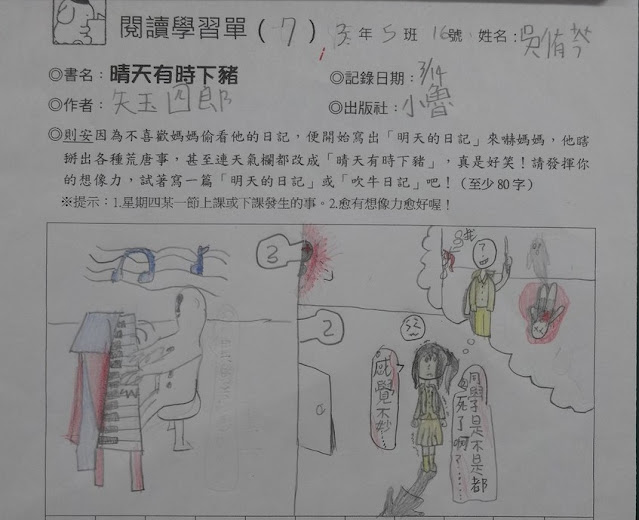 閱讀學習單(7) 3年5班16號 姓名:吳侑芩
◎書名:晴天有時下豬 ◎記錄日期:3/14
◎作者:矢玉四郎 ◎出版社:小魯
◎則安因為不喜歡媽媽偷看他的日記,便開始寫出「明天的日記」來嚇媽媽,他瞎
掰出各種荒唐事,甚至連天氣欄都改成「晴天有時下豬」,真是好笑!請發揮你
的想像力,試著寫一篇「明天的日記」或「吹牛日記」吧!(至少80字)
※提示:1.星期四某一節上課或下課發生的事。2.愈有想像力愈好喔!
3
2
8#
?
感覺不妙……
同學子是不是都
死了啊?……